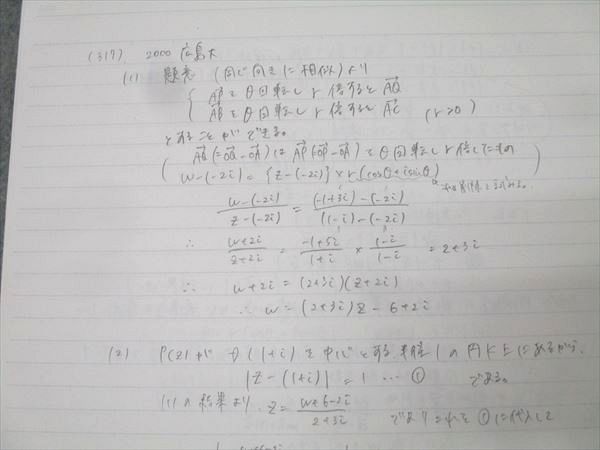 (317) 2000 広島大
(1) 題意 (同じ向きに相似) より
APをθ回転しr倍するとAQ
ABをθ回転しr倍するとAC (r>0)
とすることができる。
AQ(=OQ-OA)は AP(=OP-OA)をθ回転しr倍したもの
w-(-2i) = {z-(-2i)} × r(cosθ+isinθ)
\frac{w-(-2i)}{z-(-2i)} = \frac{(-1+3i)-(-2i)}{(1-i)-(-2i)}
∴ \frac{w+2i}{z+2i} = \frac{-1+5i}{1+i} × \frac{1-i}{1-i} = 2+3i
∴ w+2i = (2+3i)(z+2i)
∴ w = (2+3i)z - 6+2i
(2) P(z)が (1+i)を中心とする半径1の円上にあるから、
|z-(1+i)| = 1 … ① である。
(1)の結果より z = \frac{w+6-2i}{2+3i} であり これを①に代入して